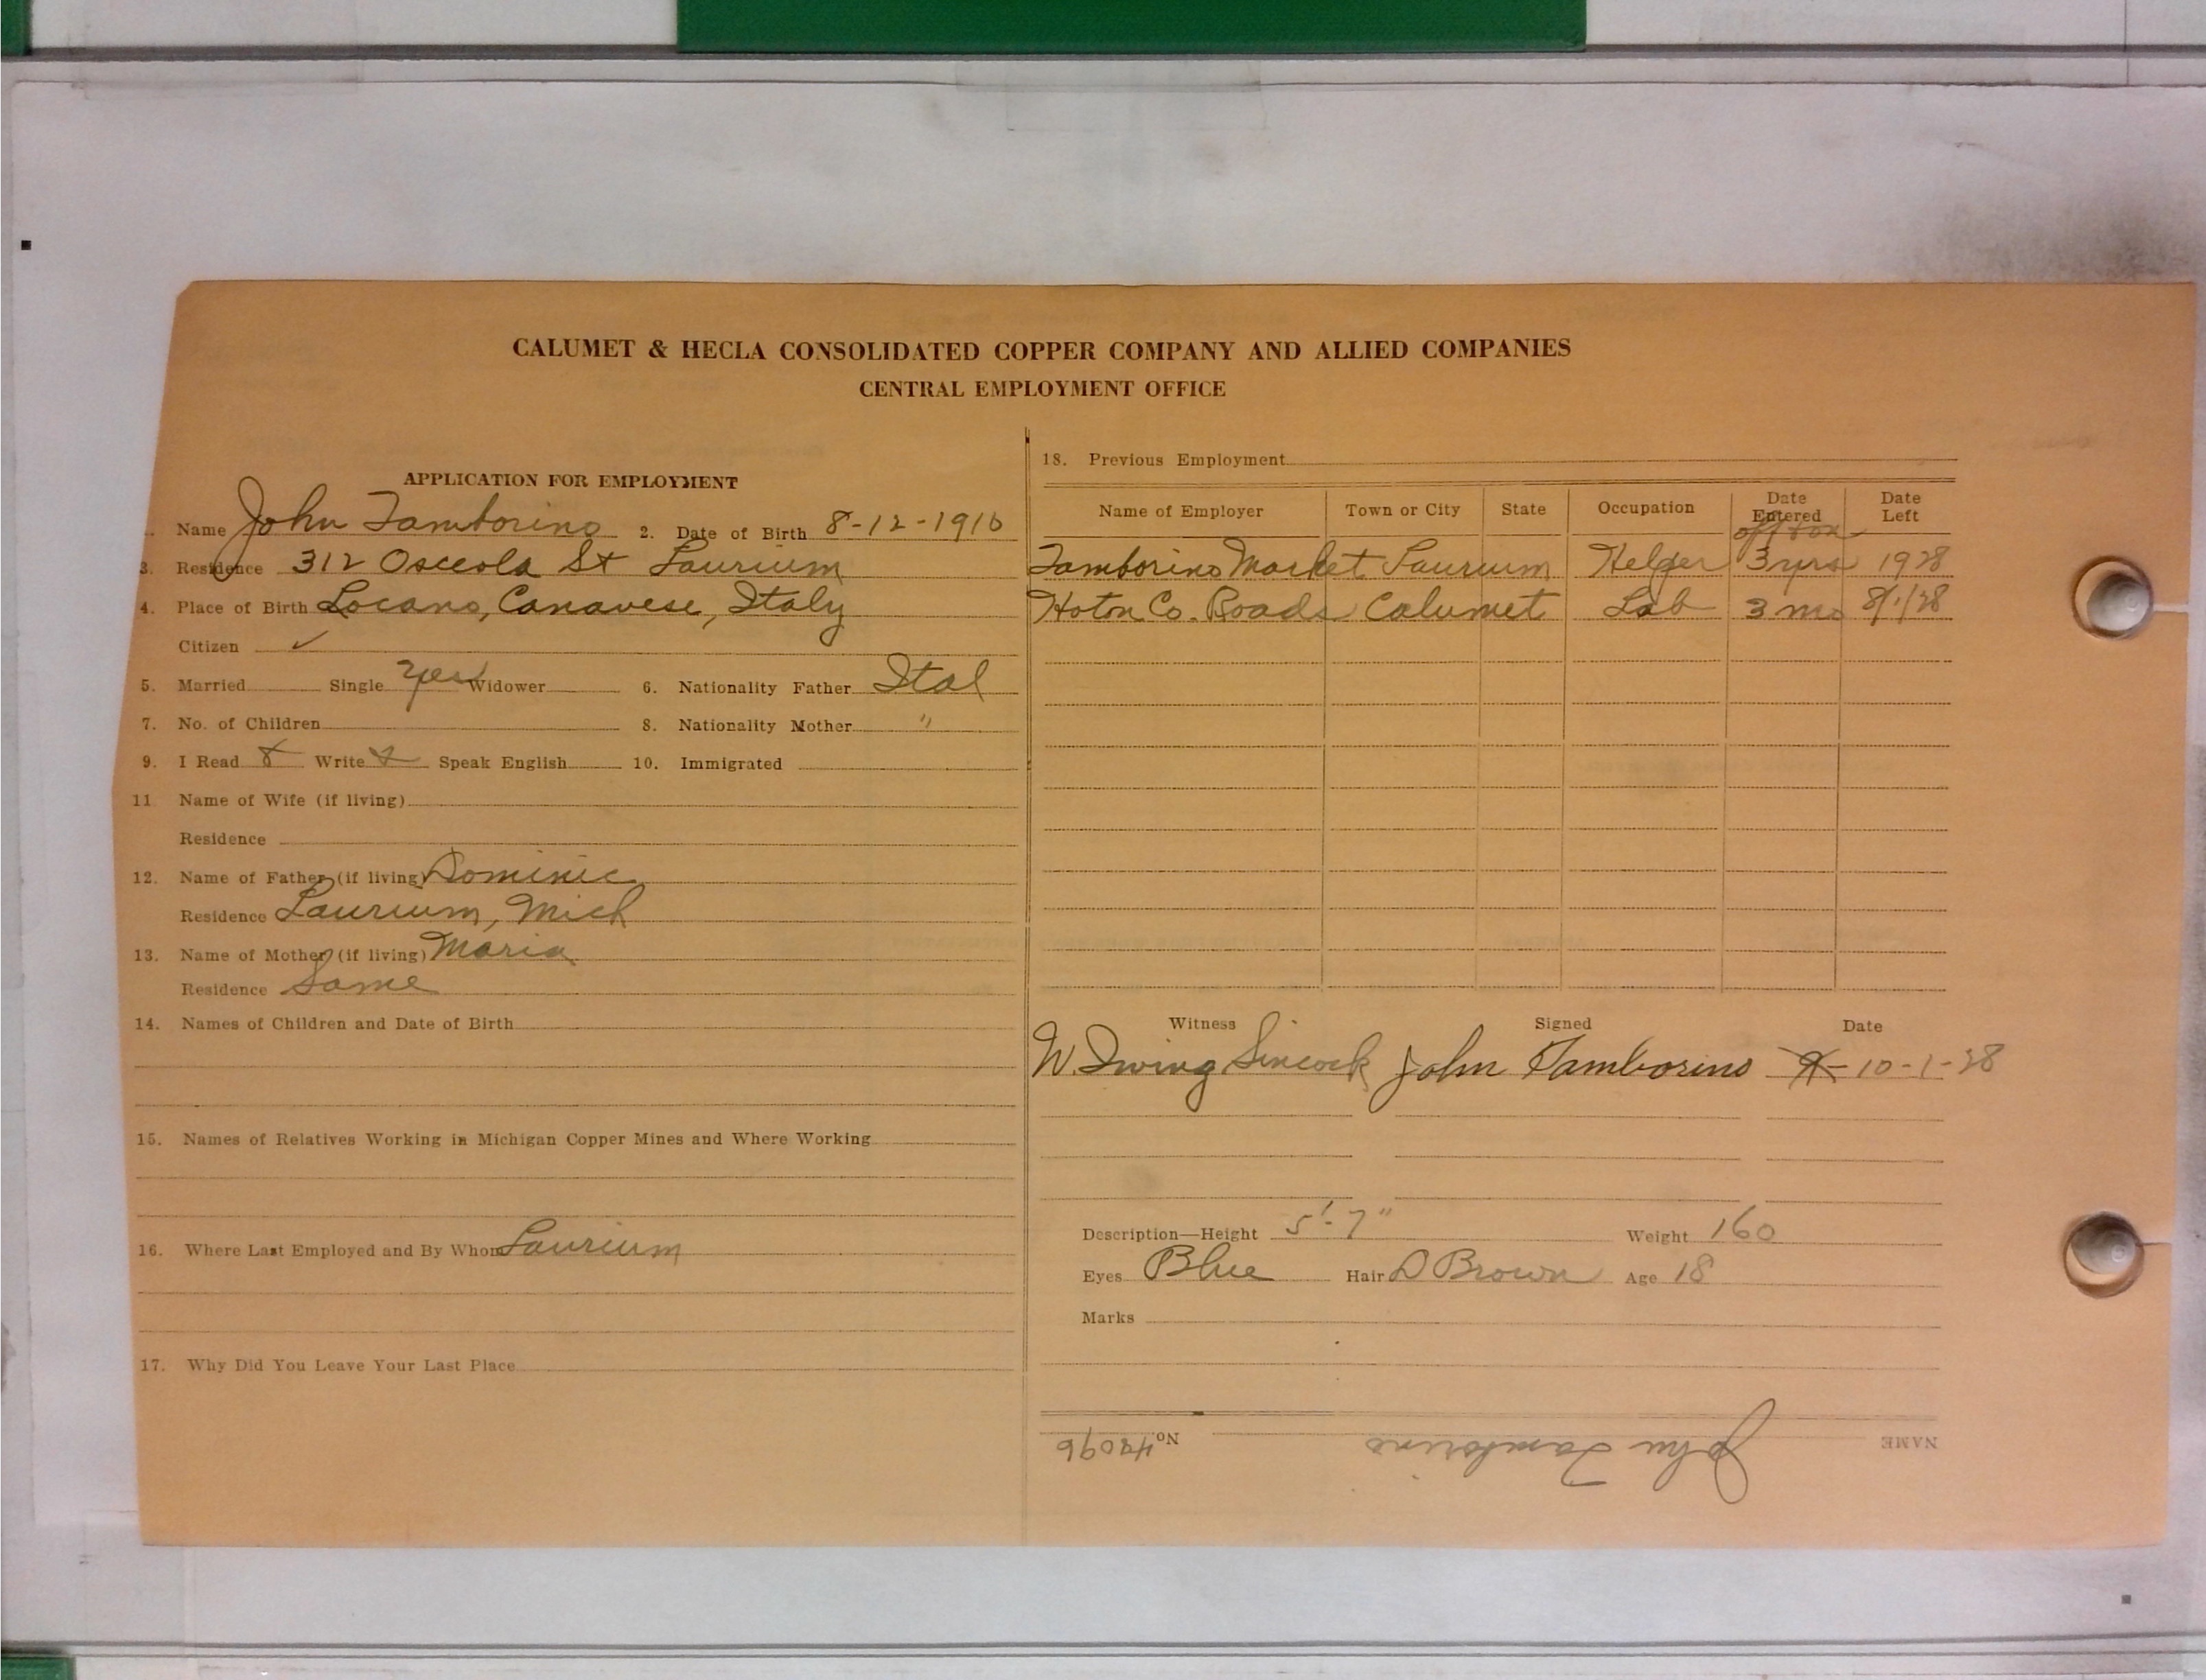 CALUMET & HECLA CONSOLIDATED COPPER COMPANY AND ALLIED COMPANIES
CENTRAL EMPLOYMENT OFFICE
APPLICATION FOR EMPLOYMENT
Name John Tamborino 2. Date of Birth 8-12-1910
3. Residence 312 Osceola St Laurium
4. Place of Birth Locano, Canavese, Italy
Citizen ✓
5. Married Single yes Widower 6. Nationality Father Ital
7. No. of Children 8. Nationality Mother "
9. I Read Write Speak English 10. Immigrated
11 Name of Wife (if living)
Residence
12. Name of Father (if living) Dominic
Residence Laurium, Mich
13. Name of Mother (if living) Maria
Residence Same
14. Names of Children and Date of Birth
15. Names of Relatives Working in Michigan Copper Mines and Where Working
16. Where Last Employed and By Whom Laurium
17. Why Did You Leave Your Last Place
18. Previous Employment
Name of Employer Town or City State Occupation Date Entered Date Left
off & on
Tamborino Market Laurium Helper 3 yrs 1928
Hoton Co. Roads Calumet Lab 3 mo 8/1/28
Witness Signed Date
W. Irving Sincock John Tamborino 10-1-28
Description—Height 5'-7" Weight 160
Eyes Blue Hair D Brown Age 18
Marks
NAME John Tamborino No. 42096